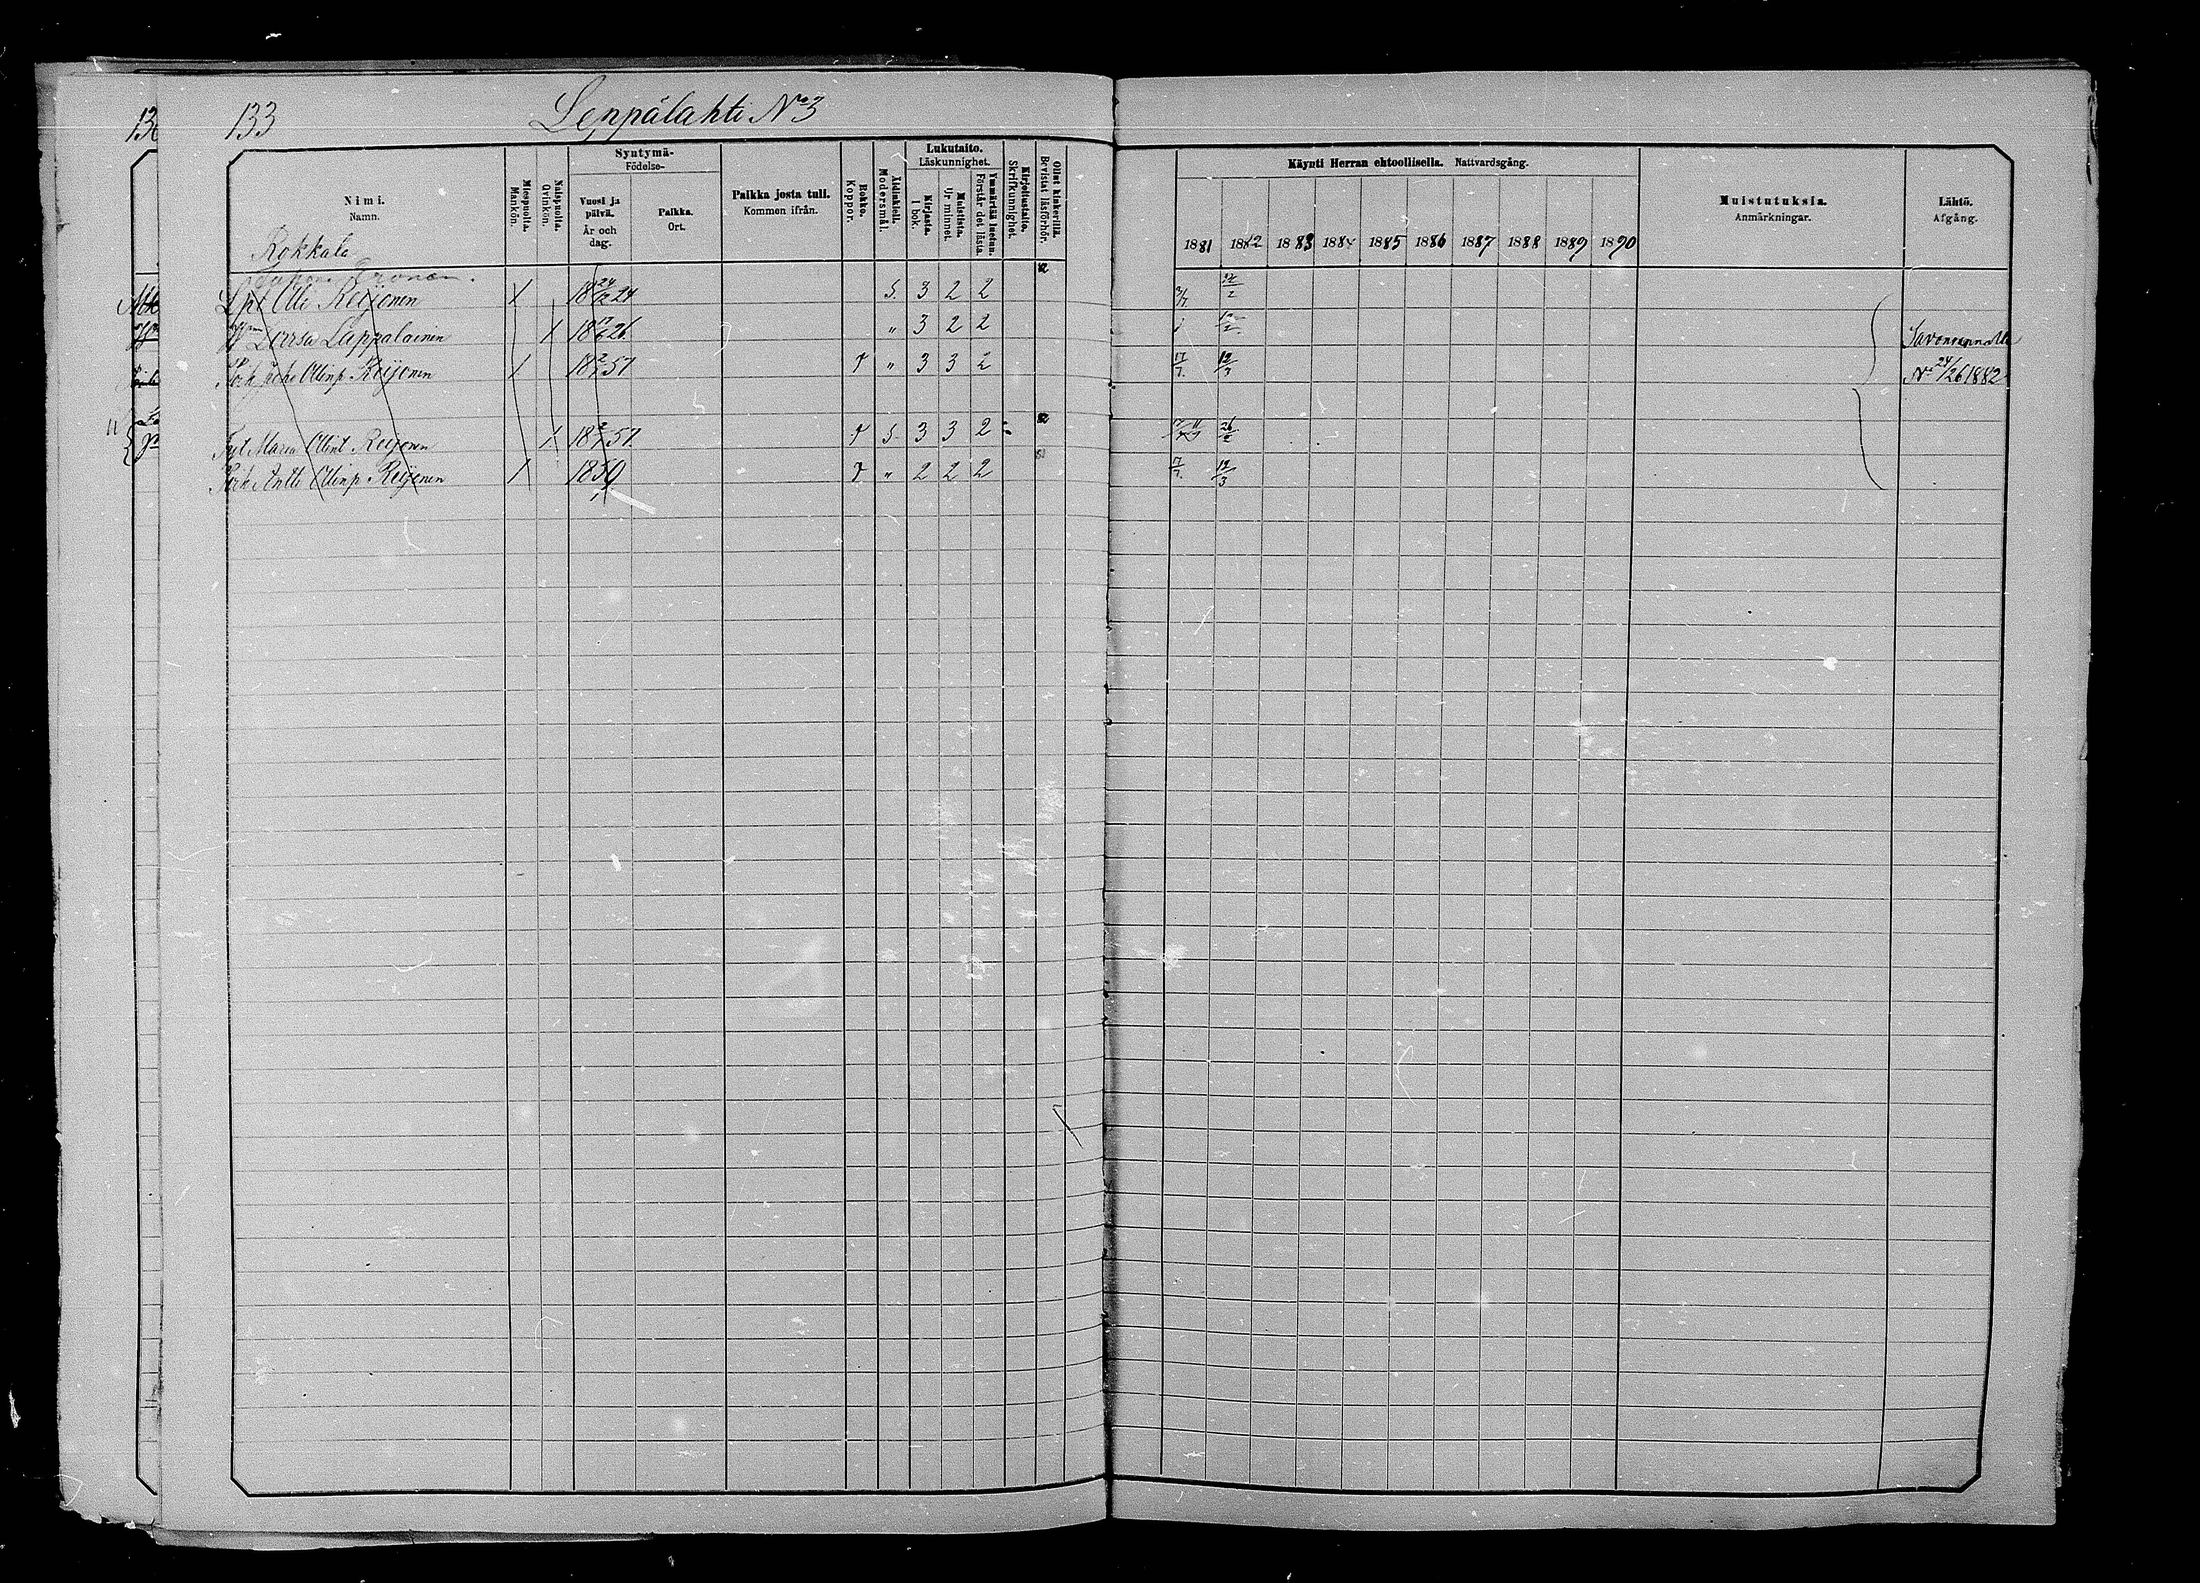 133 Leppälahti No 3
Nimi. Namn.
Miespuolta. Mankön.
Naispuolta. Qvinkön.
Syntymä- Födelse-
Vuosi ja päivä. År och dag.
Paikka. Ort.
Paikka josta tuli. Kommen ifrån.
Rokko. Koppor.
Äidinkieli. Modersmål.
Lukutaito. Läskunnighet.
Kirjasta. I bok.
Muistista. Ur minnet.
Ymmärtää luetun. Förstår det lästa.
Kirjoitustaito. Skrifkunnighet.
Ollut kinkerillä. Bevistat läsförhör.
Käynti Herran ehtoollisella. Nattvardsgång.
1881 1882 1883 1884 1885 1886 1887 1888 1889 1890
Muistutuksia. Anmärkningar.
Lähtö. Afgång.
Rokkala
Olli Reijonen X 18 24/12 24 S. 3 2 2
Lappalainen X 18 26 „ 3 2 2 Savonrannalle
Ollinp Reijonen X 18 2/1 57 r „ 3 3 2 17/7 12/3 No 24/26 1882
Maria Ollint Reijonen X 18 2/1 57 r S. 3 3 2 26/2
Antti Ollinp Reijonen X 1859 r „ 2 2 2 17/7 12/3